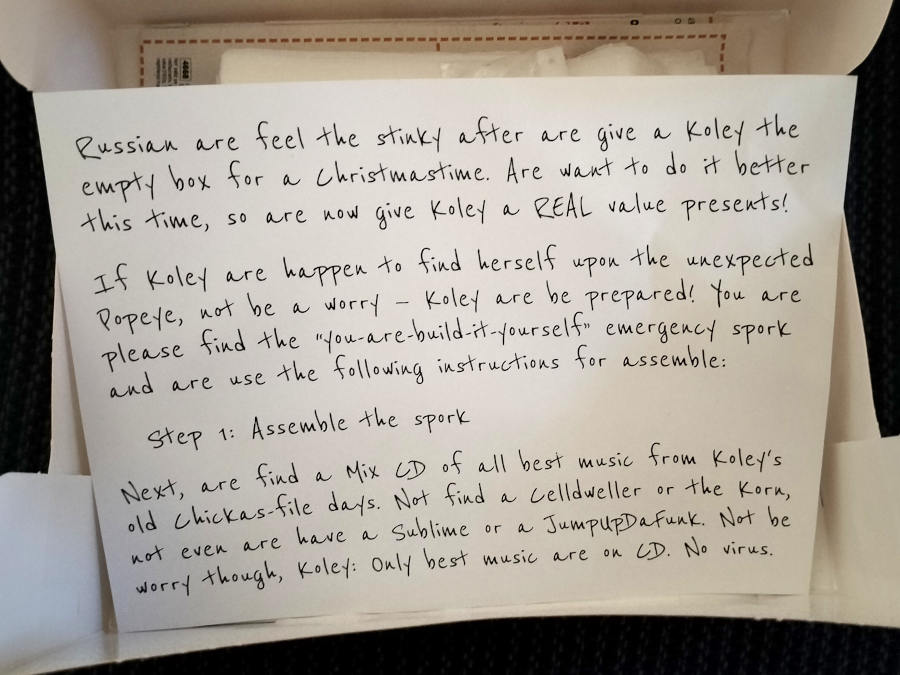 Russian are feel the stinky after are give a Koley the
empty box for a Christmastime. Are want to do it better
this time, so are now give Koley a REAL value presents!
If Koley are happen to find herself upon the unexpected
Popeye, not be a worry – Koley are be prepared! You are
please find the "you-are-build-it-yourself" emergency spork
and are use the following instructions for assemble:
Step 1: Assemble the spork
Next, are find a Mix CD of all best music from Koley's
old Chickas-file days. Not find a Celldweller or the Korn,
not even are have a Sublime or a JumpUpDaFunk. Not be
worry though, Koley: Only best music are on CD. No virus.